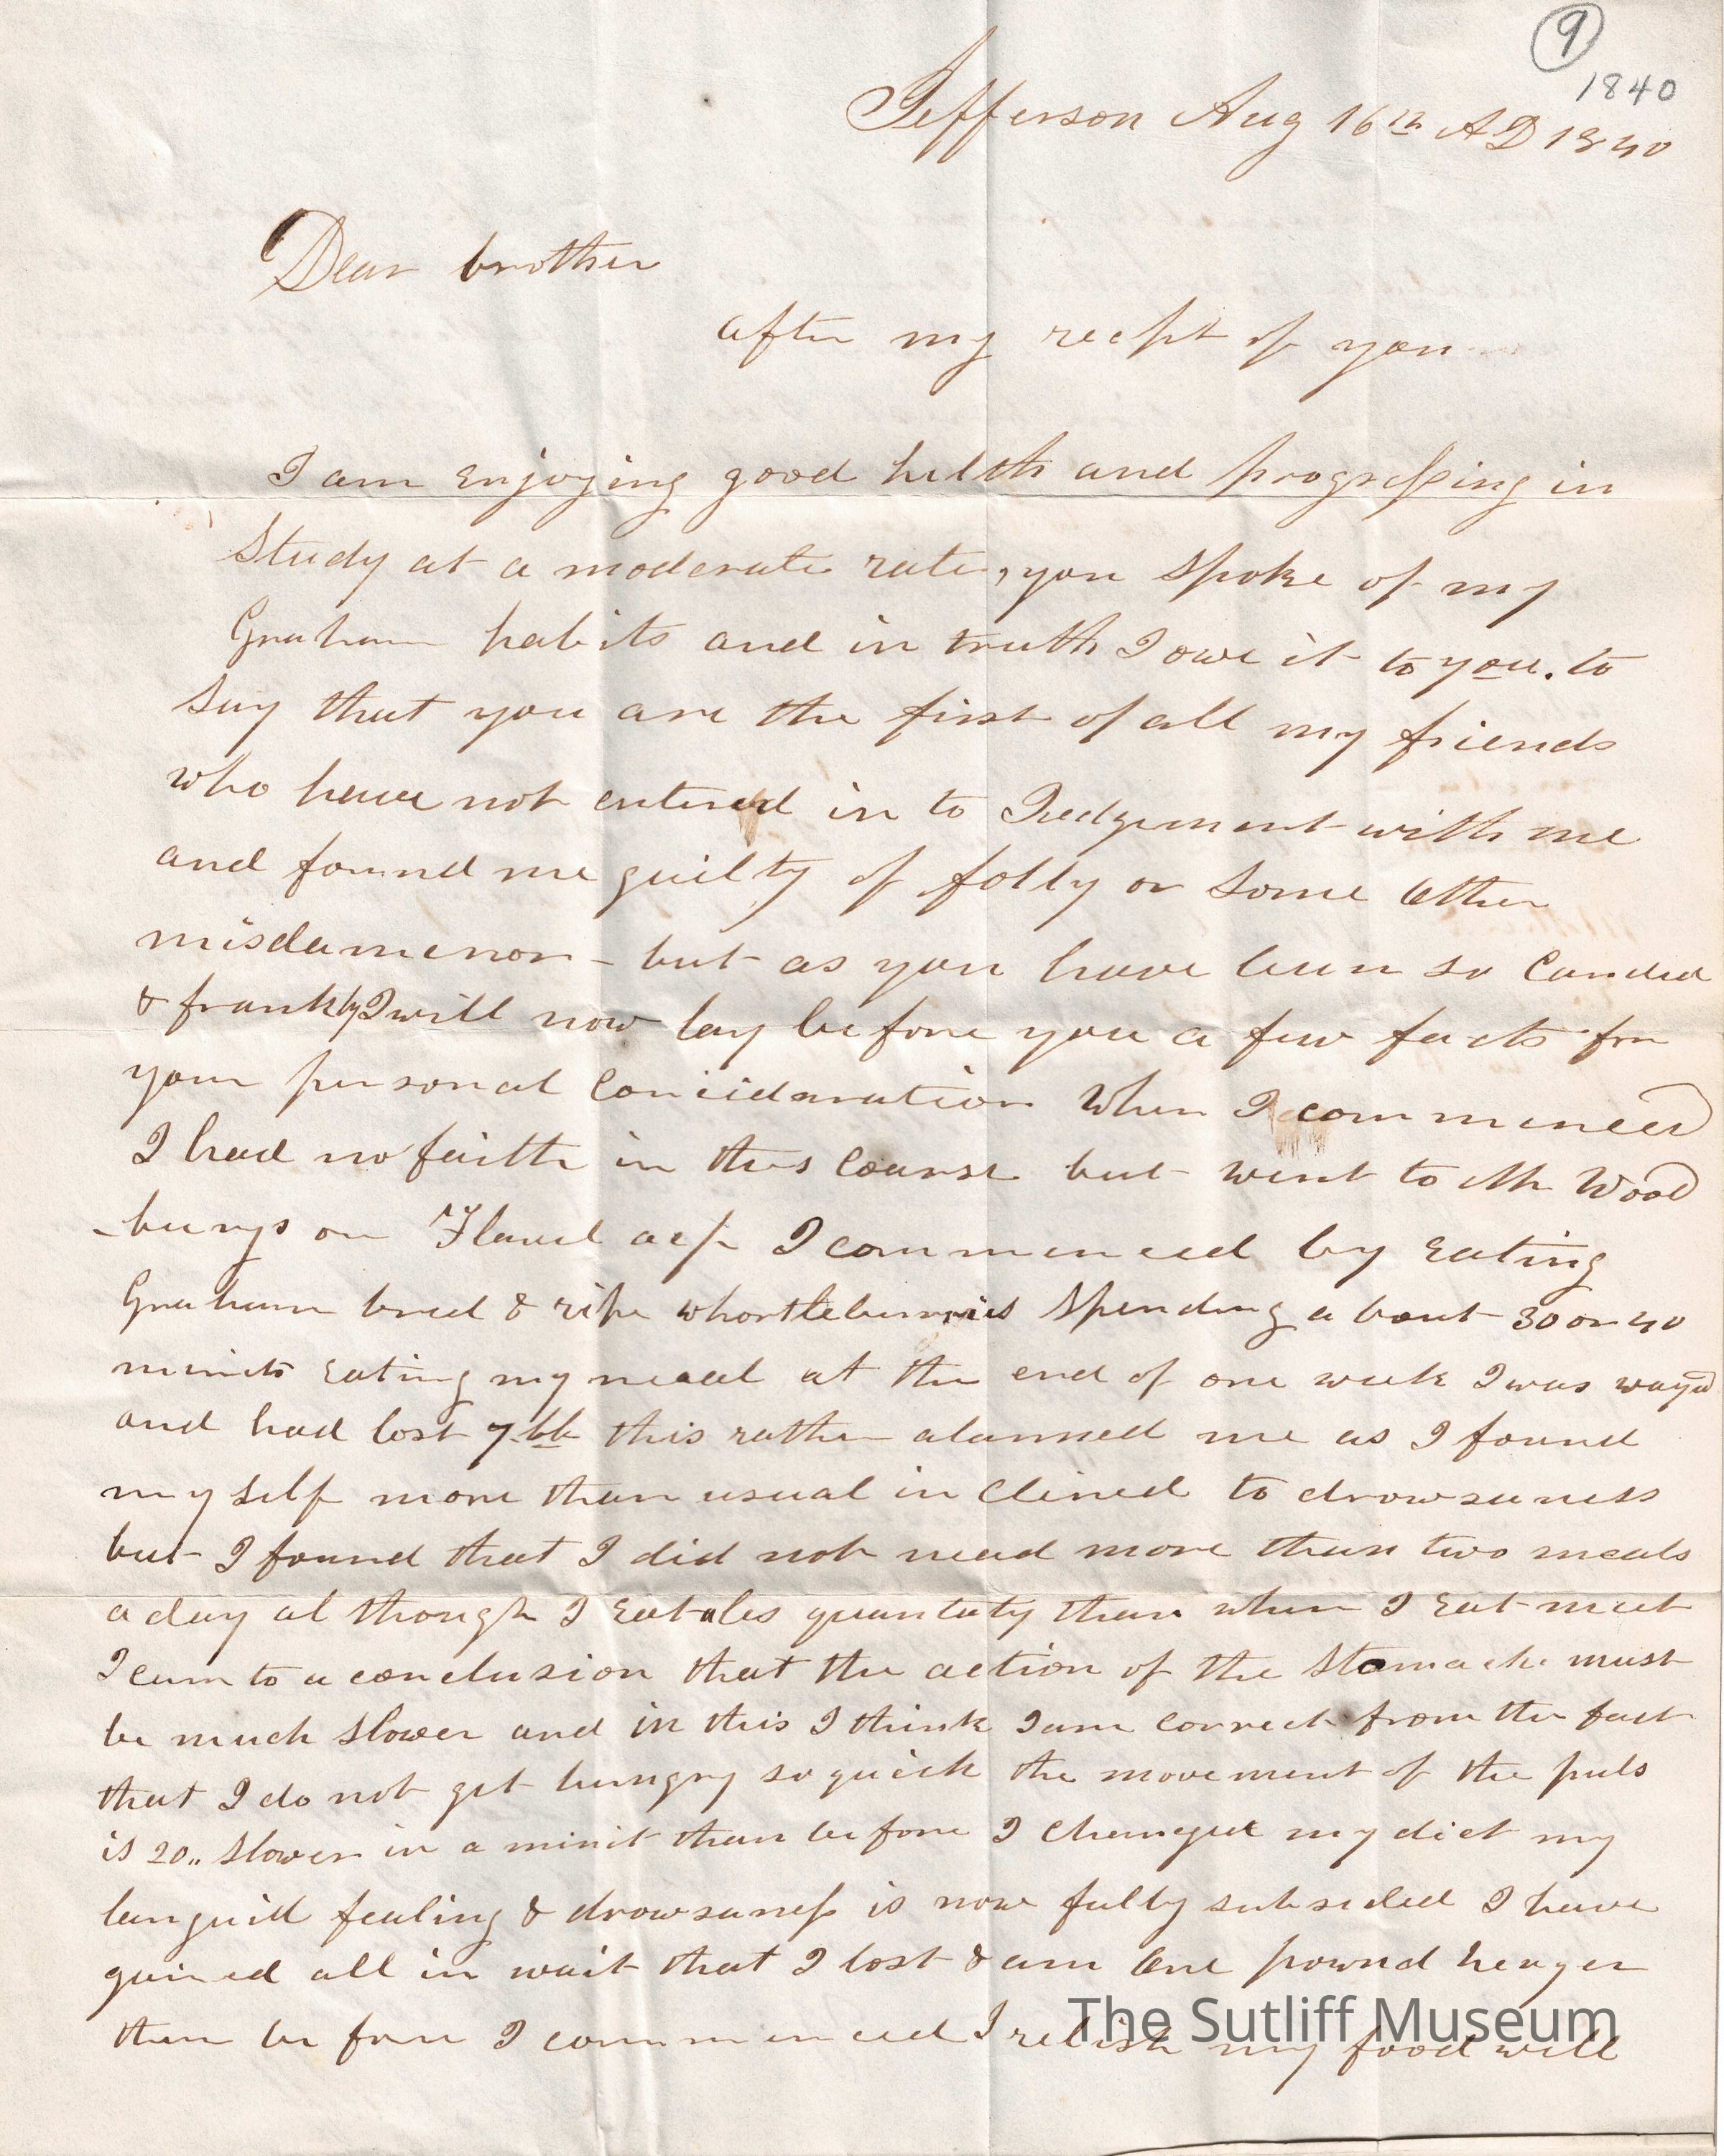 9
1840
Jefferson Aug 16th AD 1840
Dear brother
after my recept of you
I am enjoying good helth and progressing in
Study at a moderate rate, you spoke of my
Graham habits and in truth I owe it to you. to
say that you are the first of all my friends
who have not entered in to Judgement with me
and found me guilty of folly or some other
misdamenor - but as you have been so Candid
& frankly I will now lay before you a few facts for
your personal Concideration When I commenced
I had no faith in this Course but went to Mr Wood
-burys on I commenced by eating
Graham bred & ripe whortleberries spending a bout 30 or 40
minits eating my meael at the end of one week I was wayed
and had lost 7 lb this rather alarmed me as I found
my self more than usual in clined to drowseness
but I found that I did not nead more than two meals
a day al though I eat a les quantuty than when I eat meet
I cum to a conclusion that the action of the Stomach must
be much slower and in this I think I am correct from the fact
that I do not get hungry so quick the movement of the puls
is 20,, slower in a minit than before I changed my diet my
languid fealing & drowsaness is now fully subsided I have
gained all in wait that I lost & am one pownd hevyer
than be fore I commenced I relish my food well
The Sutliff Museum